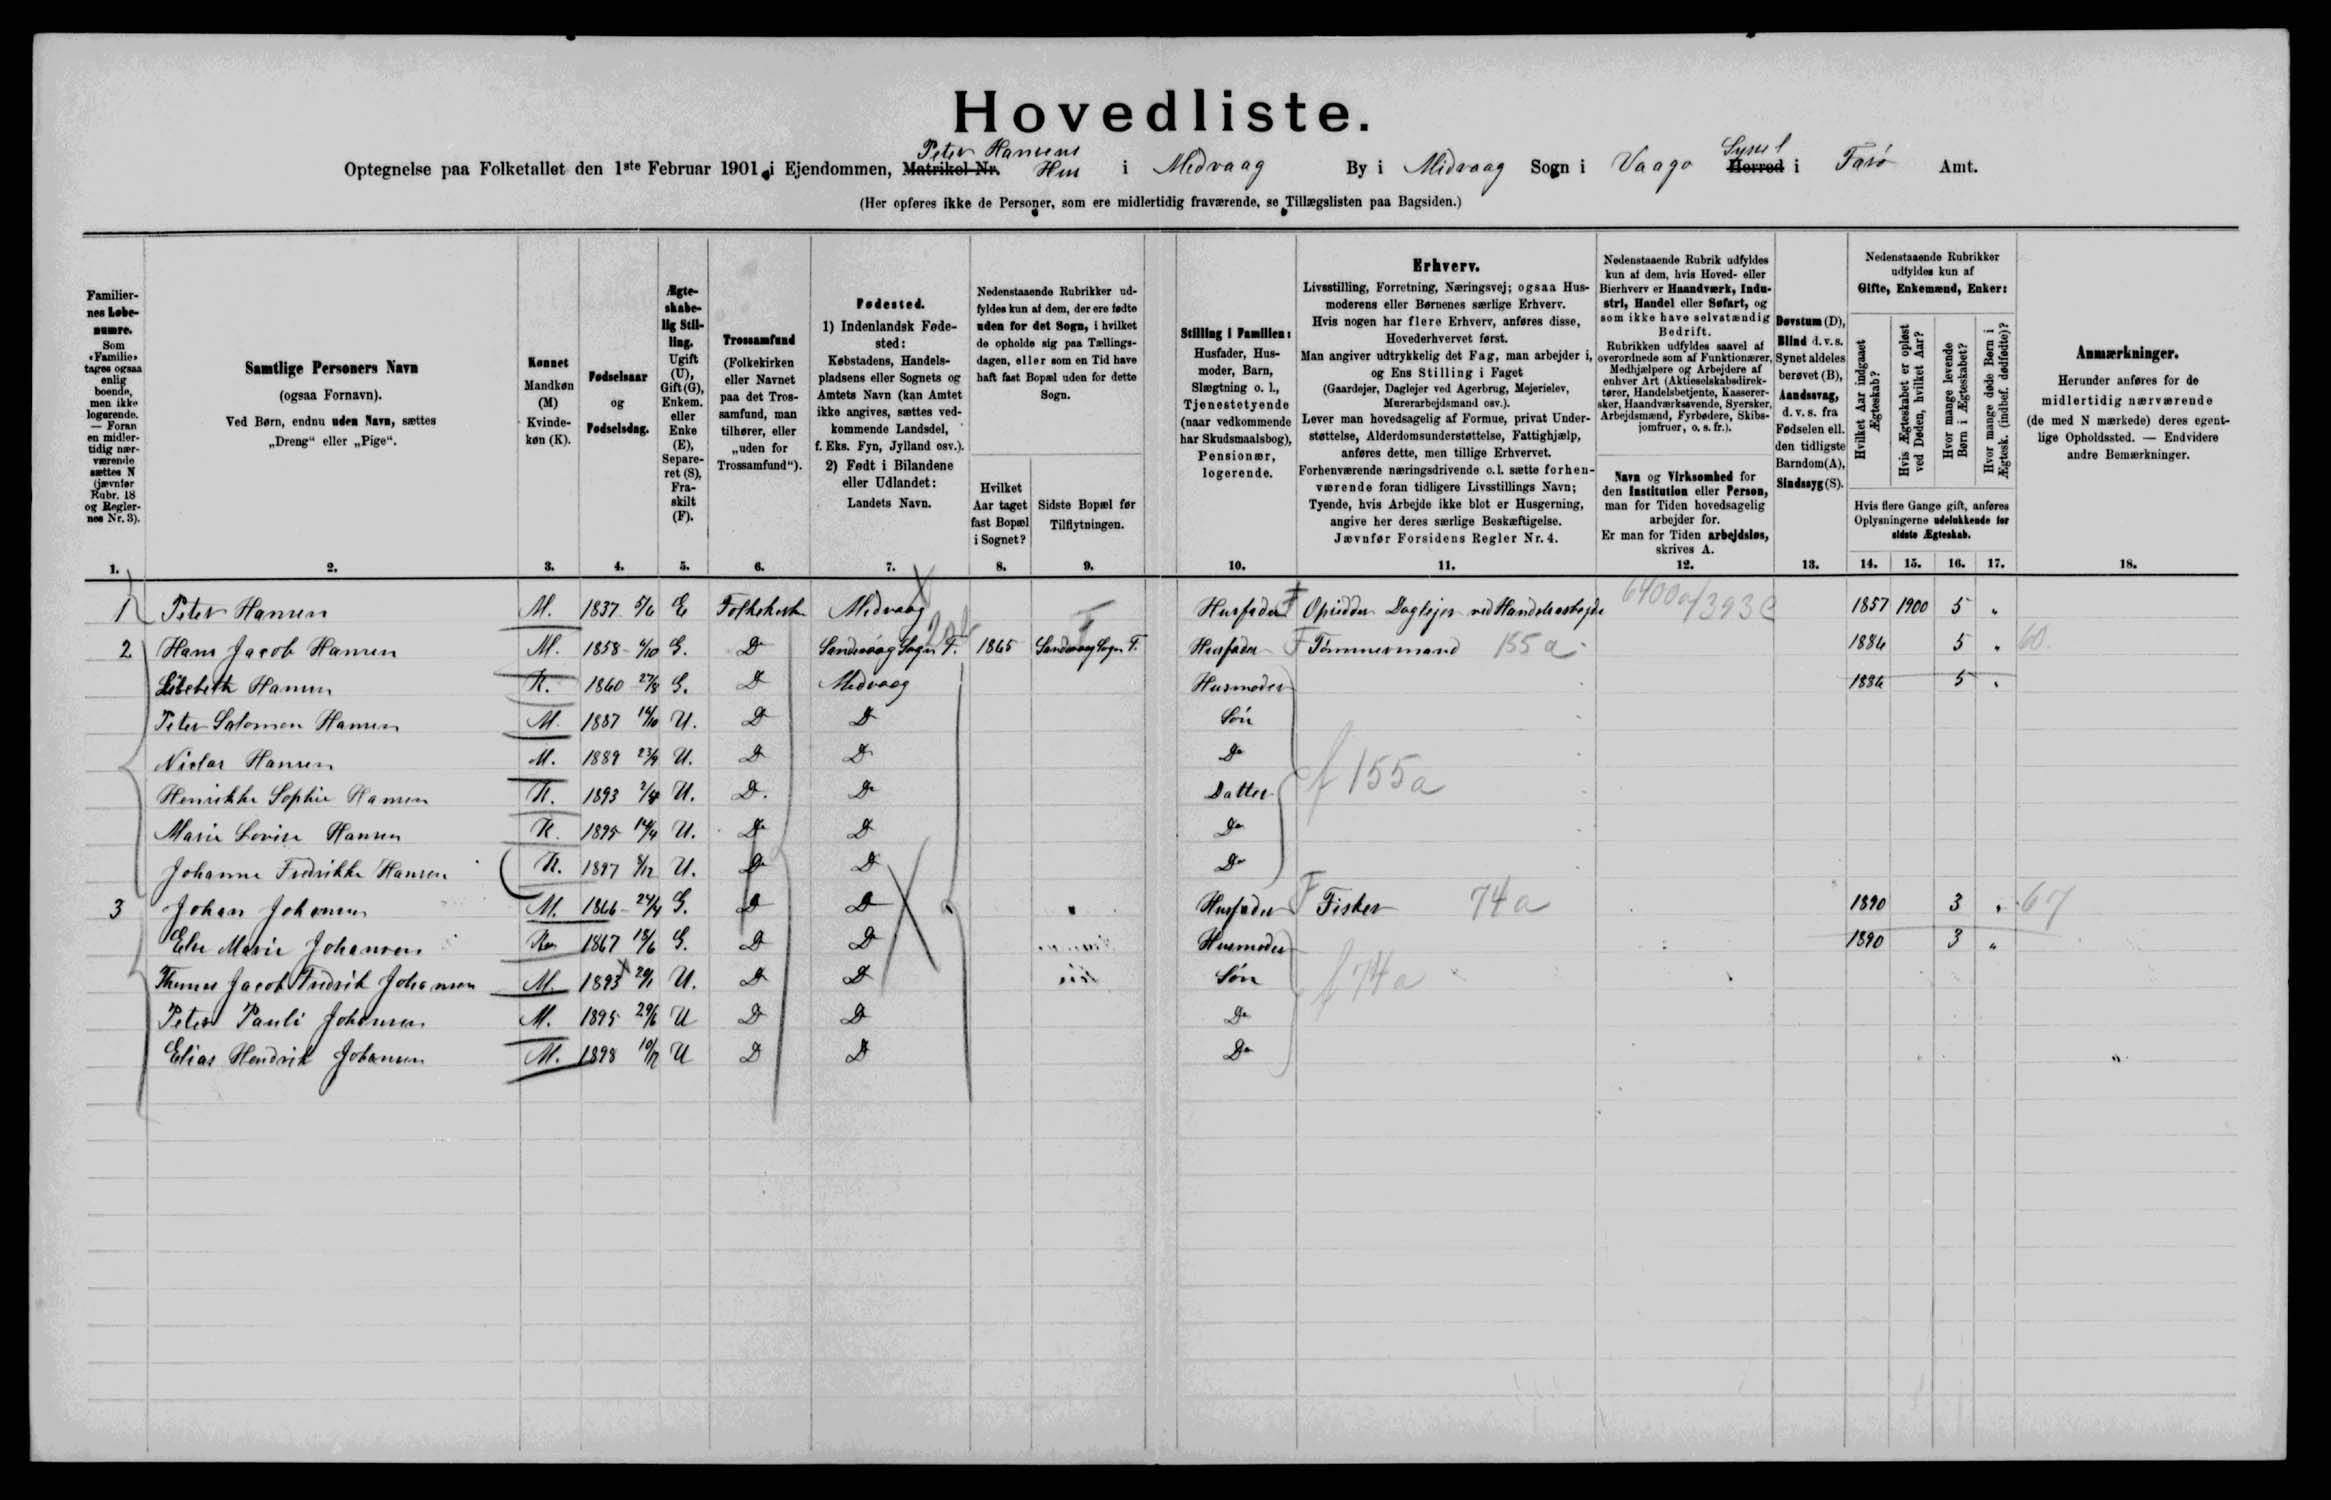 Hovedliste.
Peter Hansens Sysel
Optegnelse paa Folketallet den 1ste Februar 1901 i Ejendommen, Matrikel-Nr. Hus i Midvaag By i Midvaag Sogn i Vaagø Herred i Færø Amt.
(Her opføres ikke de Personer, som ere midlertidig fraværende, se Tillægslisten paa Bagsiden.)
Familiernes Løbenumre. Som «Familie» tages ogsaa enlig boende, men ikke logerende. — Foran en midlertidig nærværende sættes N (jævnfør Rubr. 18 og Reglernes Nr. 3).
Samtlige Personers Navn
(ogsaa Fornavn).
Ved Børn, endnu uden Navn, sættes
„Dreng“ eller „Pige“.
Kønnet
Mandkøn (M)
Kvindekøn (K).
Fødselsaar
og
Fødselsdag.
Ægteskabelig Stilling.
Ugift (U), Gift (G), Enkem. eller Enke (E), Separeret (S), Fraskilt (F).
Trossamfund
(Folkekirken eller Navnet paa det Trossamfund, man tilhører, eller „uden for Trossamfund“).
Fødested.
1) Indenlandsk Fødested:
Købstadens, Handelspladsens eller Sognets og Amtets Navn (kan Amtet ikke angives, sættes vedkommende Landsdel, f. Eks. Fyn, Jylland osv.).
2) Født i Bilandene eller Udlandet:
Landets Navn.
Nedenstaaende Rubrikker udfyldes kun af dem, der ere fødte uden for det Sogn, i hvilket de opholde sig paa Tællingsdagen, eller som en Tid have haft fast Bopæl uden for dette Sogn.
Hvilket Aar taget fast Bopæl i Sognet?
Sidste Bopæl før Tilflytningen.
Stilling i Familien:
Husfader, Husmoder, Barn, Slægtning o. l., Tjenestetyende (naar vedkommende har Skudsmaalsbog), Pensionær, logerende.
Erhverv.
Livsstilling, Forretning, Næringsvej; ogsaa Husmoderens eller Børnenes særlige Erhverv.
Hvis nogen har flere Erhverv, anføres disse, Hovederhvervet først.
Man angiver udtrykkelig det Fag, man arbejder i, og Ens Stilling i Faget
(Gaardejer, Daglejer ved Agerbrug, Mejerielev, Murerarbejdsmand osv.).
Lever man hovedsagelig af Formue, privat Understøttelse, Alderdomsunderstøttelse, Fattighjælp, anføres dette, men tillige Erhvervet.
Forhenværende næringsdrivende o. l. sætte forhenværende foran tidligere Livsstillings Navn; Tyende, hvis Arbejde ikke blot er Husgerning, angive her deres særlige Beskæftigelse.
Jævnfør Forsidens Regler Nr. 4.
Nedenstaaende Rubrik udfyldes kun af dem, hvis Hoved- eller Bierhverv er Haandværk, Industri, Handel eller Søfart, og som ikke have selvstændig Bedrift.
Rubrikken udfyldes saavel af overordnede som af Funktionærer, Medhjælpere og Arbejdere af enhver Art (Aktieselskabsdirektører, Handelsbetjente, Kasserersker, Haandværkssvende, Syersker, Arbejdsmænd, Fyrbødere, Skibsjomfruer, o. s. fr.).
Navn og Virksomhed for den Institution eller Person, man for Tiden hovedsagelig arbejder for.
Er man for Tiden arbejdsløs, skrives A.
Døvstum (D), Blind d. v. s. Synet aldeles berøvet (B), Aandssvag, d. v. s. fra Fødselen ell. den tidligste Barndom (A), Sindssyg (S).
Nedenstaaende Rubrikker udfyldes kun af
Gifte, Enkemænd, Enker:
Hvilket Aar indgaaet Ægteskab?
Hvis Ægteskabet er opløst ved Døden, hvilket Aar?
Hvor mange levende Børn i Ægteskabet?
Hvor mange døde Børn i Ægtesk. (indbef. dødfødte)?
Hvis flere Gange gift, anføres Oplysningerne udelukkende for sidste Ægteskab.
Anmærkninger.
Herunder anføres for de midlertidig nærværende (de med N mærkede) deres egentlige Opholdssted. — Endvidere andre Bemærkninger.
1. 2. 3. 4. 5. 6. 7. 8. 9. 10. 11. 12. 13. 14. 15. 16. 17. 18.
1 Peter Hansen M. 1837 5/6 E Folkekirk Midvaag Husfader Daglejer ved 1857 1900 5 „
2 Hans Jacob Hansen M. 1858 G. Do Sandevaag Sogn F. 1865 Sandevaag Sogn F. Husfader F Tømmermand 155a 1886 5 „ 60.
Hansen K. 1860 27/8 G. Do Midvaag Husmoder 1886 5 „
Peter Salomon Hansen M. 1887 U. Do Do Søn
Niclas Hansen M. 1889 U. Do Do Do f 155a
Henrikke Sophie Hansen K. 1893 U. Do Do Datter
Marie Lovise Hansen K. 1895 U. Do Do Do
Johanne Fredrikke Hansen K. 1897 U. Do Do Do
3 Johan Johansen M. 1866 G. Do Do Husfader F Fisker 74a 1890 3 „ 67
Else Marie Johansen K. 1867 G. Do Do Husmoder 1890 3 „
Jacob Fredrik Johansen M. 1893 U. Do Do Søn f 74a
Peter Pauli Johansen M. 1895 29/6 U Do Do Do
Elias Hendrik Johansen M. 1898 U Do Do Do „